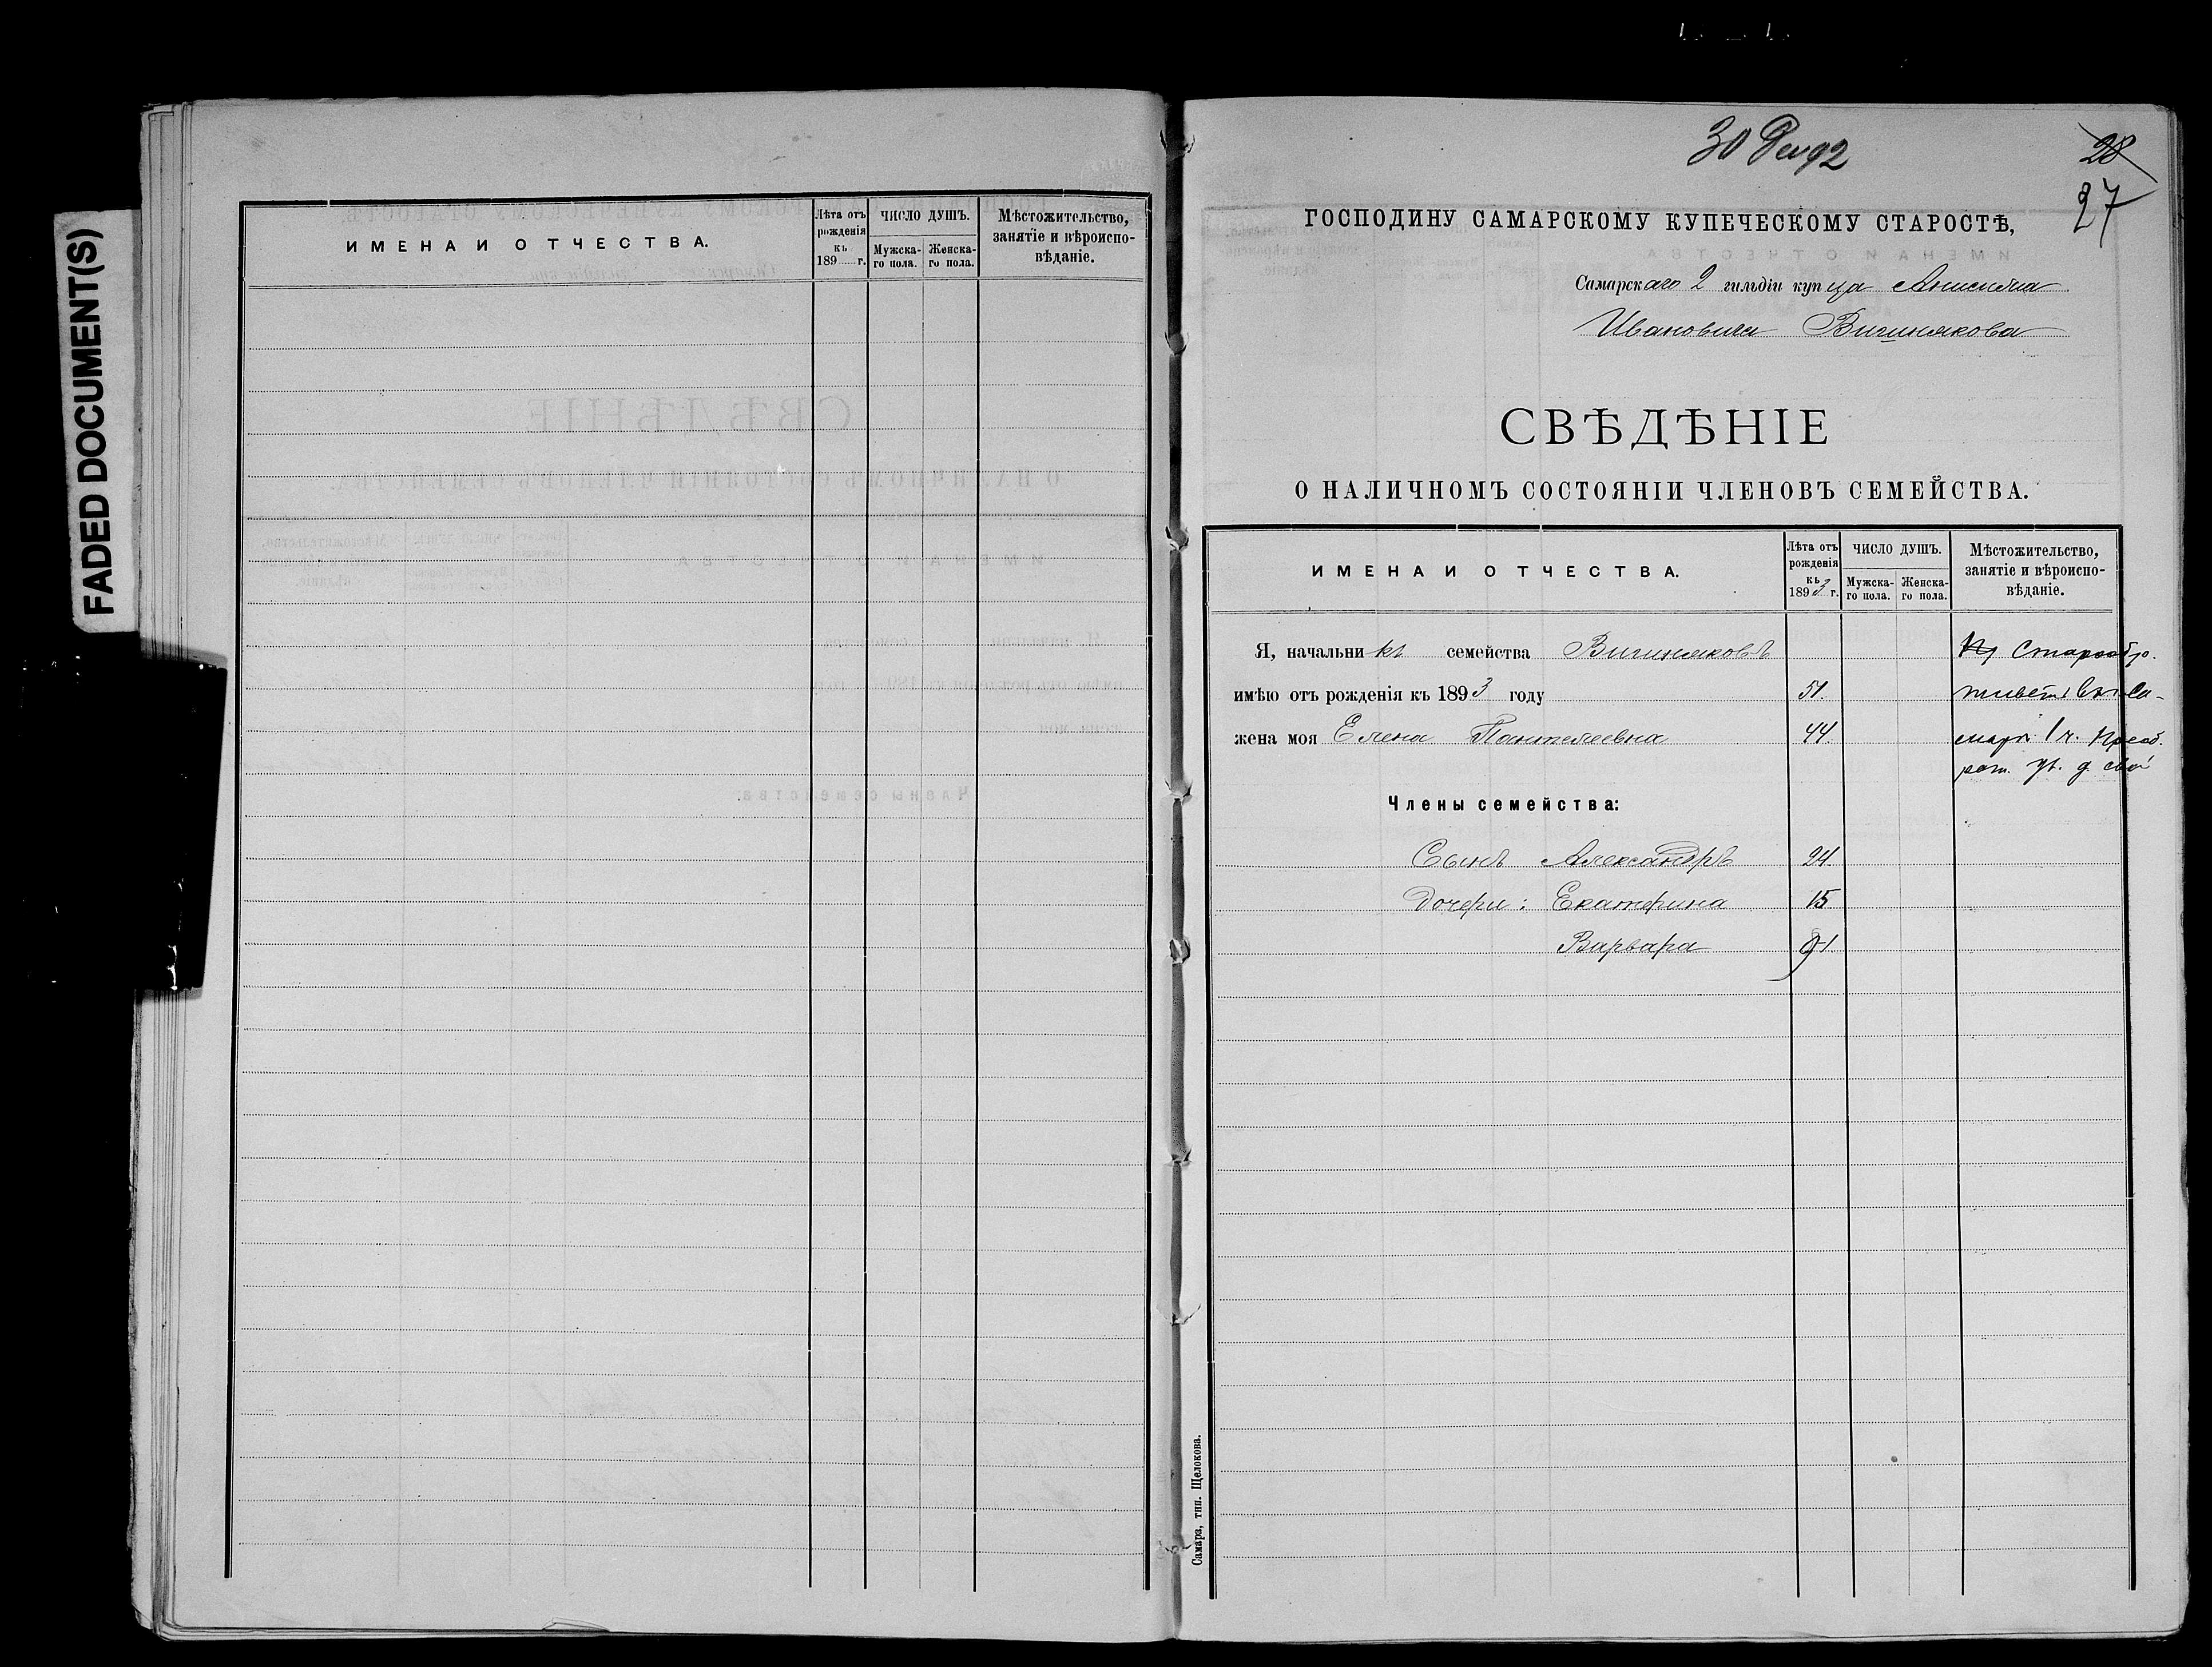 FADED DOCUMENT(S)
ИМЕНА И ОТЧЕСТВА.
Лѣта отъ рожденія къ 189 г.
ЧИСЛО ДУШЪ.
Мужска-го пола.
Женска-го пола.
Мѣстожительство, занятіе и вѣроиспо-вѣданіе.
30 Дек 92
28
27
ГОСПОДИНУ САМАРСКОМУ КУПЕЧЕСКОМУ СТАРОСТѢ,
Самарскаго 2 гильдіи купца Анисима
Ивановича Вишнякова
СВѢДѢНІЕ
О НАЛИЧНОМЪ СОСТОЯНІИ ЧЛЕНОВЪ СЕМЕЙСТВА.
ИМЕНА И ОТЧЕСТВА.
Лѣта отъ рожденія къ 1893 г.
ЧИСЛО ДУШЪ.
Мужска-го пола.
Женска-го пола.
Мѣстожительство, занятіе и вѣроиспо-вѣданіе.
Я, начальникъ семейства Вишняковъ Старообр.
имѣю отъ рожденія къ 1893 году 51. живетъ въ Са-
жена моя Елена Пантелеевна 44. марѣ 1 ч.
д. свой
Члены семейства:
Сынъ Александръ 24.
Дочери: Екатерина 15
Варвара 9
Самара, тип. Щелокова.